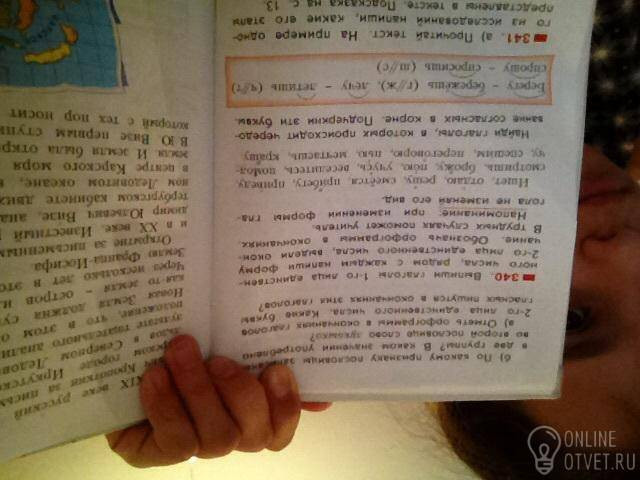 б) По какому признаку пословицы записаны
в две группы? В каком значении употреблено
во второй пословице слово аукнешь?
а) Отметь орфограммы в окончаниях глаголов
2-го лица единственного числа. Какие буквы
гласных пишутся в окончаниях этих глаголов?
340. Выпиши глаголы 1-го лица единствен-
ного числа, рядом с каждым напиши форму
2-го лица единственного числа, выдели окон-
чание. Обозначь орфограммы в окончаниях.
В трудных случаях поможет учитель.
Напоминание: при изменении формы гла-
гола не изменяй его вид.
Ищет, отдаю, решу, смеётся, прибегу, приведу,
смотришь, брожу, пою, учусь, веселитесь, помол-
чу, спешим, переговорю, пью, мечтаешь, крашу.
Найди глаголы, в которых происходит чередо-
вание согласных в корне. Подчеркни эти буквы.
Берегу – бережёшь (г//ж), лечу – летишь (ч//т)
спрошу – спросишь (ш//с)
341. а) Прочитай текст. На примере одно-
го из исследований напиши, какие его этапы
представлены в тексте. Подсказка на с. 13.
XIX веке русский
Кропоткин за письм
городе Иркутске
Северном Ледови
думате тщательного анализ
положение, что в этом о
Новая Земля должна су
кая-то земля – остров и
Через несколько лет в это
Землю Франца-Иосифа.
Открытие за письменным
и в XX веке. Известный
димир Юльевич Визе, ана
тербургском кабинете движе
ном Ледовитом океане,
в центре Карского моря
земля. И земля была откры
В.Ю. Визе первым ступи
который с тех пор носит
ONLINE
OTVET.RU